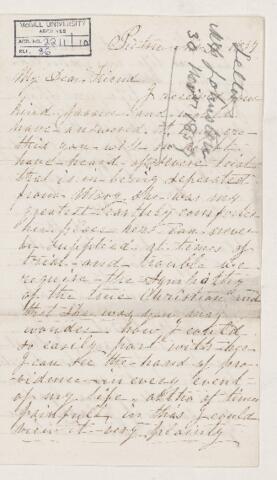 McGILL UNIVERSITY
ARCHIVES
ACC. NO. 2211 / 10
REF. 96
Letter
30 Nov 1859
Pictou Nov 30th 1859
My Dear Friend
I received your
kind favour and would
have answered it
this you will no doubt
have heard of severe trial
that is in being seperated
from Mary She was my
greatest earthly comforter
her place here can never
be supplied at times of
trial and trouble we
require the Sympathy
of the true Christian and
that She was you may
wonder how I could
so easily part with her
I can see the hand of pro-
vidence in every event
of my life altho at times
painfull in this I could
view it very plainly